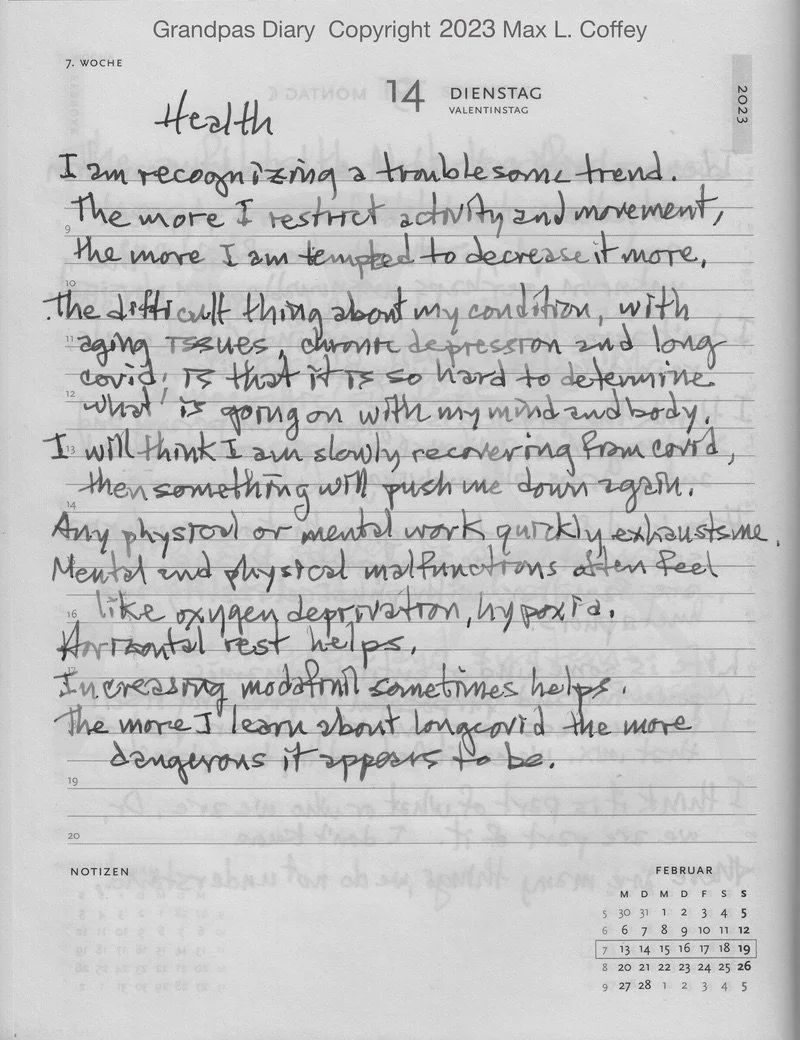 Grandpas Diary Copyright 2023 Max L. Coffey
7. WOCHE
14 DIENSTAG
VALENTINSTAG
2023
Health
I am recognizing a troublesome trend.
The more I restrict activity and movement,
9
the more I am tempted to decrease it more,
10
The difficult thing about my condition, with
11 aging issues, chronic depression and long
covid, is that it is so hard to determine
12 what is going on with my mind and body.
I 13 will think I am slowly recovering from covid,
then something will push me down again.
14
Any physical or mental work quickly exhausts me.
Mental and physical malfunctions often feel
16 like oxygen deprivation, hypoxia.
Horizontal rest helps.
17
Increasing modafinil sometimes helps.
The more I learn about longcovid the more
dangerous it appears to be.
19
20
NOTIZEN
FEBRUAR
M D M D F S S
5 30 31 1 2 3 4 5
6 6 7 8 9 10 11 12
7 13 14 15 16 17 18 19
8 20 21 22 23 24 25 26
9 27 28 1 2 3 4 5